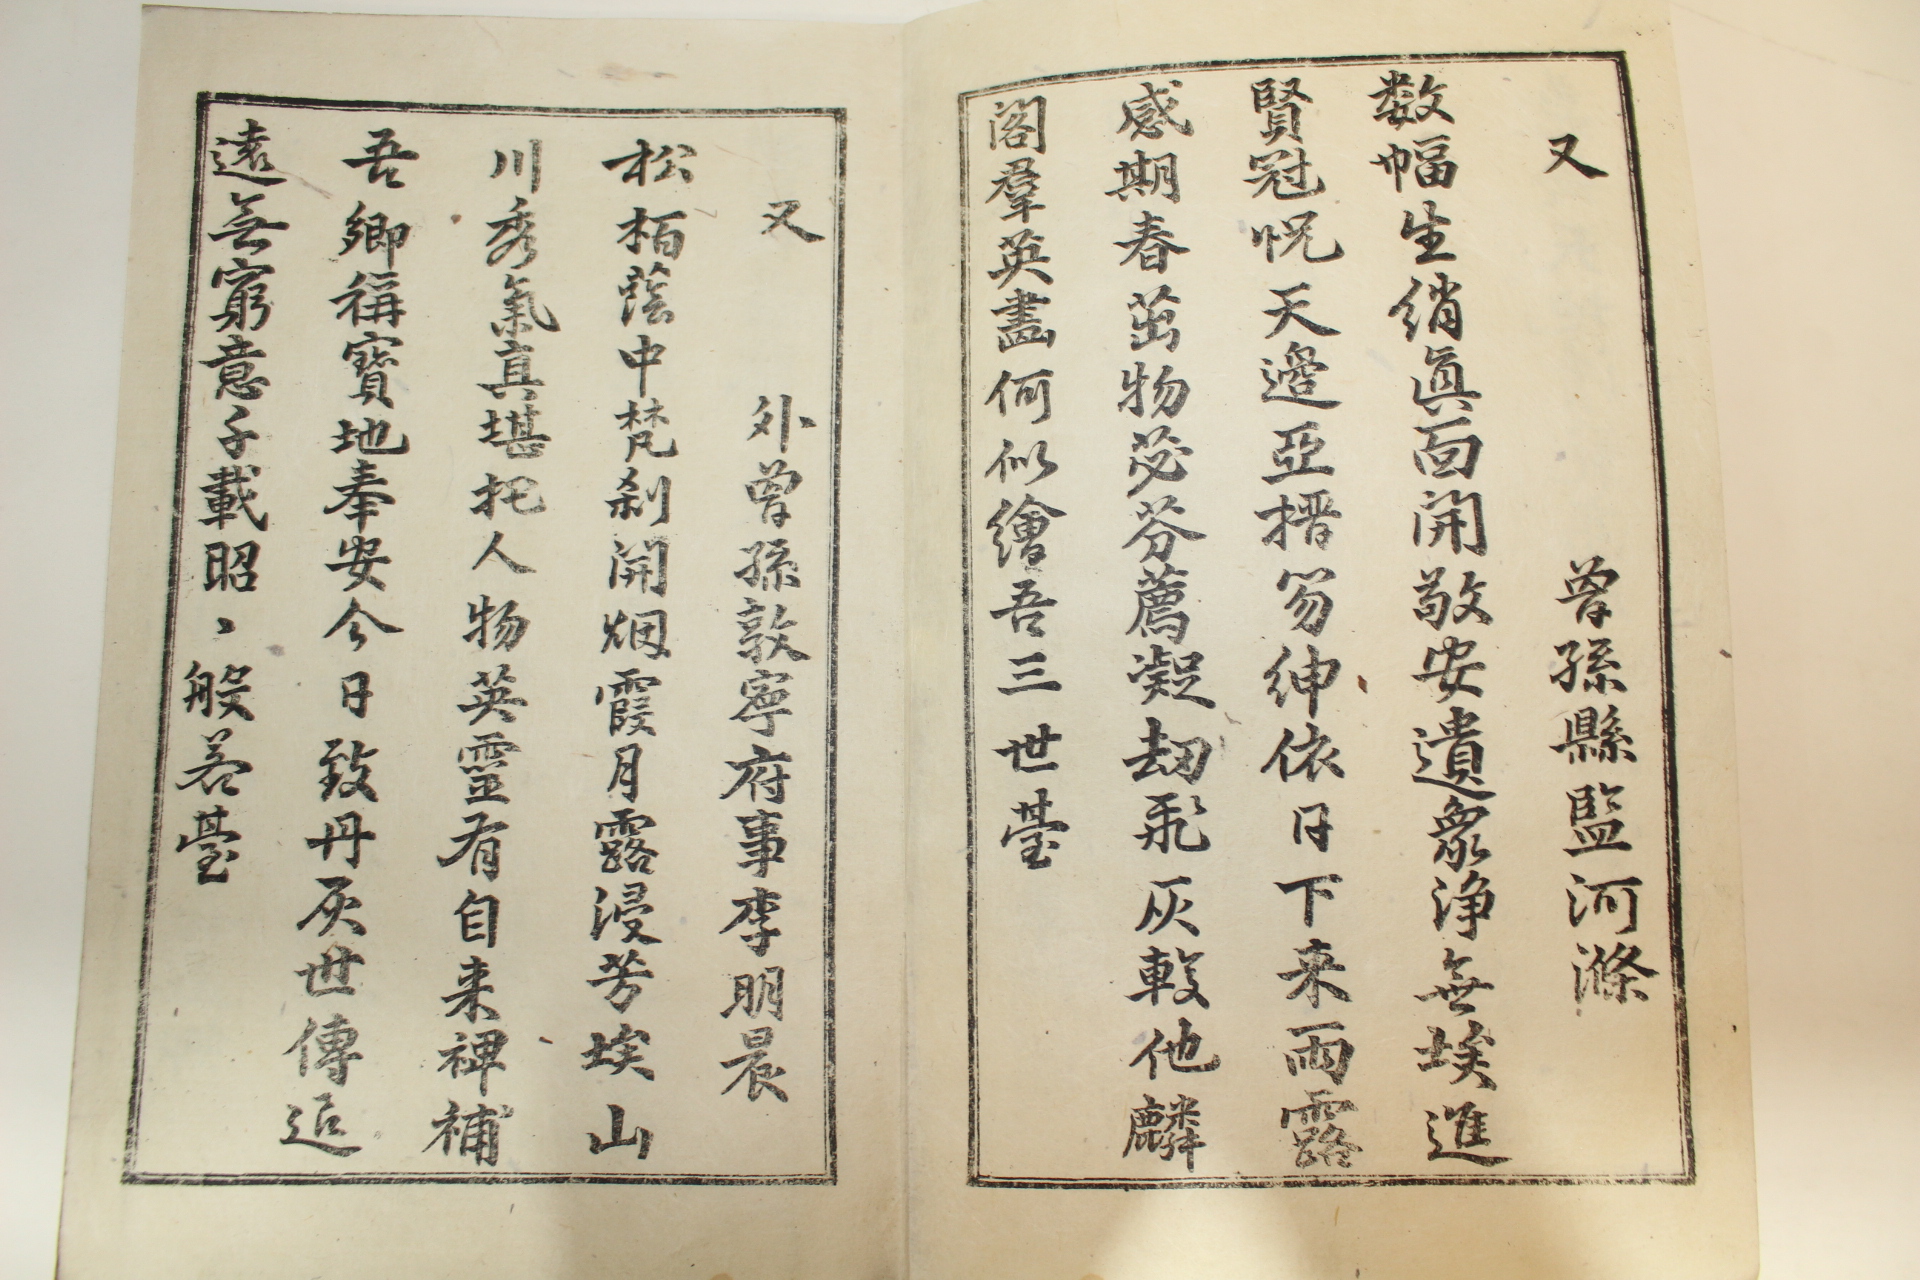 又
曾孫縣監河滌
数幅生綃眞面開敬安遺象浄無埃進
賢冠怳天邉亞搢笏紳依日下来雨露
感期春茁物苾芬薦凝劫飛灰較他麟
閣羣英畵何似繪吾三世䑓
又
外曾孫敦寧府事李明晨
松栢蔭中梵刹開烟霞月露浸芳埃山
川秀氣真堪托人物英靈有自来裨補
吾鄉稱寶地奉安今日致丹灰世傳追
遠無窮意千載昭〻般若䑓